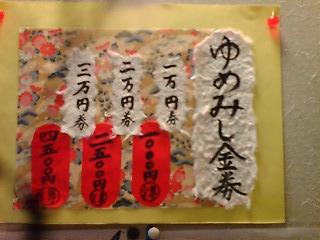 ゆめみし金券
一万円券
二万円券
三万円券
一〇〇〇円
二五〇〇円
四五〇〇円